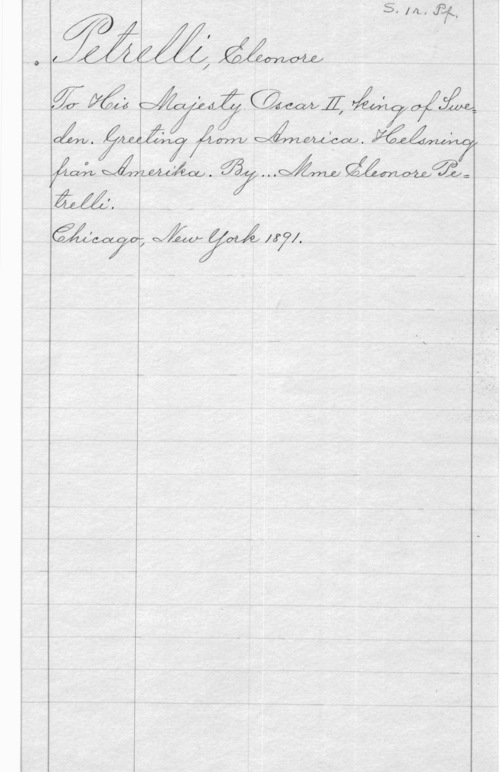 S. 1 r. Pf.
Petrelli, Eleonore
To His Majesty Oscar II, king of Swe=
den. Greeting from America. Helsning
från Amerika. By...Mme Eleonore Pe=
trelli.
Chicago, New York 1891.